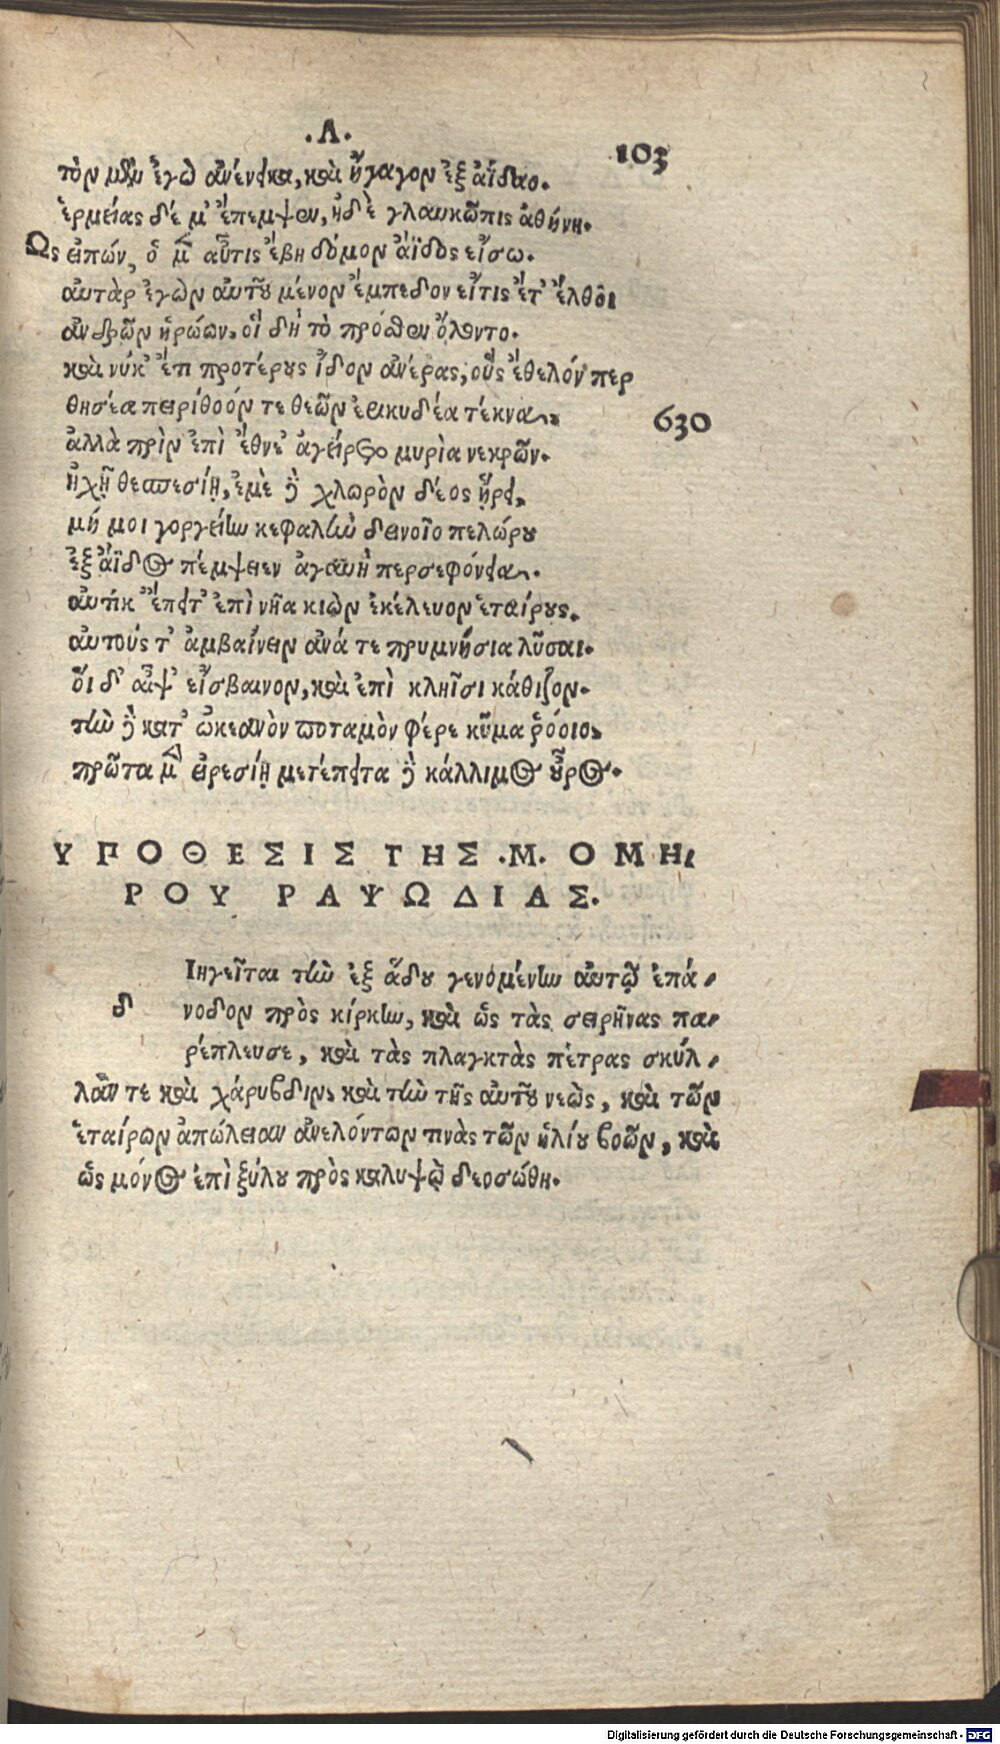 .Λ.
103
τὸν μὲν ἐγὼ ἀνένεικα, καὶ ἤγαγον ἐξ ἀΐδαο.
ἑρμείας δέ μ' ἔπεμψεν, ἠδὲ γλαυκῶπις ἀθήνη.
Ως εἰπών, ὁ μὲν αὖτις ἔβη δόμον ἄϊδος εἴσω.
αὐτὰρ ἐγὼν αὐτοῦ μένον ἔμπεδον εἴτις ἔτ' ἔλθοι
ἀνδρῶν ἡρώων, οἳ δὴ τὸ πρόσθεν ὄλοντο.
καὶ νύκ' ἔτι προτέρους ἴδον ἀνέρας, οὓς ἔθελόν περ
θησέα πειρίθοόν τε θεῶν ἐεικυδέα τέκνα.
630
ἀλλὰ πρὶν ἐπὶ ἔθνε' ἀγείρετο μυρία νεκρῶν.
ἠχῇ θεσπεσίῃ, ἐμὲ δὲ χλωρὸν δέος ᾕρει,
μή μοι γοργείην κεφαλὴν δεινοῖο πελώρου
ἐξ ἄϊδος πέμψειεν ἀγαυὴ περσεφόνεια.
αὐτίκ' ἔπειτ' ἐπὶ νῆα κιὼν ἐκέλευον ἑταίρους,
αὐτούς τ' ἀμβαίνειν ἀνά τε πρυμνήσια λῦσαι.
οἵ δ' αἶψ' εἴσβαινον, καὶ ἐπὶ κληῖσι κάθιζον.
τὴν δὲ κατ' ὠκεανὸν ποταμὸν φέρε κῦμα ῥόοιο,
πρῶτα μὲν εἰρεσίῃ μετέπειτα δὲ κάλλιμος οὖρος.
ΥΠΟΘΕΣΙΣ ΤΗΣ .Μ. ΟΜΗ-
ΡΟΥ ΡΑΨΩΔΙΑΣ.
δ Ιηγεῖται τὴν ἐξ ᾅδου γενομένην αὐτῷ ἐπά-
νοδον πρὸς κίρκην, καὶ ὡς τὰς σειρῆνας πα-
ρέπλευσε, καὶ τὰς πλαγκτὰς πέτρας σκύλ-
λαν τε καὶ χάρυβδιν, καὶ τὴν τῆς αὐτοῦ νεὼς, καὶ τῶν
ἑταίρων ἀπώλειαν ἀνελόντων τινὰς τῶν ἡλίου βοῶν, καὶ
ὡς μόνος ἐπὶ ξύλου πρὸς καλυψὼ διεσώθη.
Digitalisierung gefördert durch die Deutsche Forschungsgemeinschaft - DFG